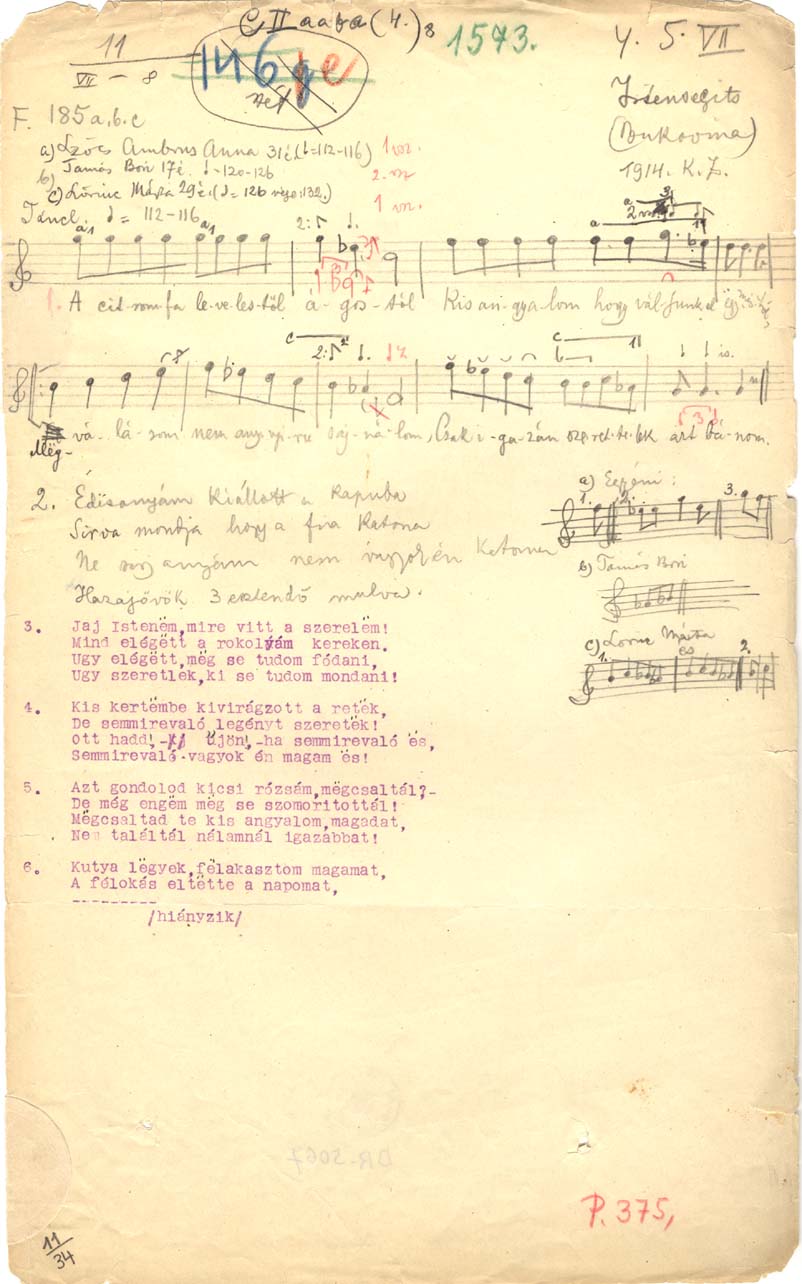 C II aaba (4.) 8
11
VII – 8
146
1573.
4. 5. VII
Istensegits
(Bukovina)
1914. K. Z.
F. 185 a, b. c
a) Szőcs Ambrus Anna 31 é. (♩=112-116) 1 vsz.
b) Tamás Bori 17 é. ♩=120-126 2. vsz
c) Lőrinc Márta 29 é. (♩=126 vége: 132.) 1 vsz.
Táncl. ♩= 112-116
1. A cit-rom-fa le-ve-les-től á-gos-tól Kis an-gya-lom hogy vál-junk el
Még vá-lá-som nem any-nyi-ra saj-ná-lom, Csak i-ga-zán sze-ret-te-lek azt bá-nom.
2. Édisanyám kiállott a kapuba
Sirva mondja hogy a fia katona
Ne sirj anyám nem vagyok én katona
Hazajövök 3 esztendő mulva.
a) Egyéni:
1. 2. 3.
b) Tamás Bori
c) Lőrinc Márta
1. és 2.
3. Jaj Istenëm,mire vitt a szerelëm!
Mind elégëtt a rokolyám kereken.
Ugy elégëtt,mëg se tudom fódani,
Ugy szeretlek,ki se tudom mondani!
4. Kis kertëmbe kivirágzott a retëk,
De semmirevaló legényt szeretëk!
Ott hadd!,- üjön!,-ha semmirevaló ës,
Semmirevaló vagyok én magam ës!
5. Azt gondolod kicsi rózsám,mëgcsaltál?-
De még engëm mëg se szomoritottál!
Mëgcsaltad te kis angyalom,magadat,
Nem találtál nálamnál igazabbat!
6. Kutya lëgyek,fëlakasztom magamat,
A félokás eltëtte a napomat,
---------
/hiányzik/
DR-5067
P. 375,
11/34